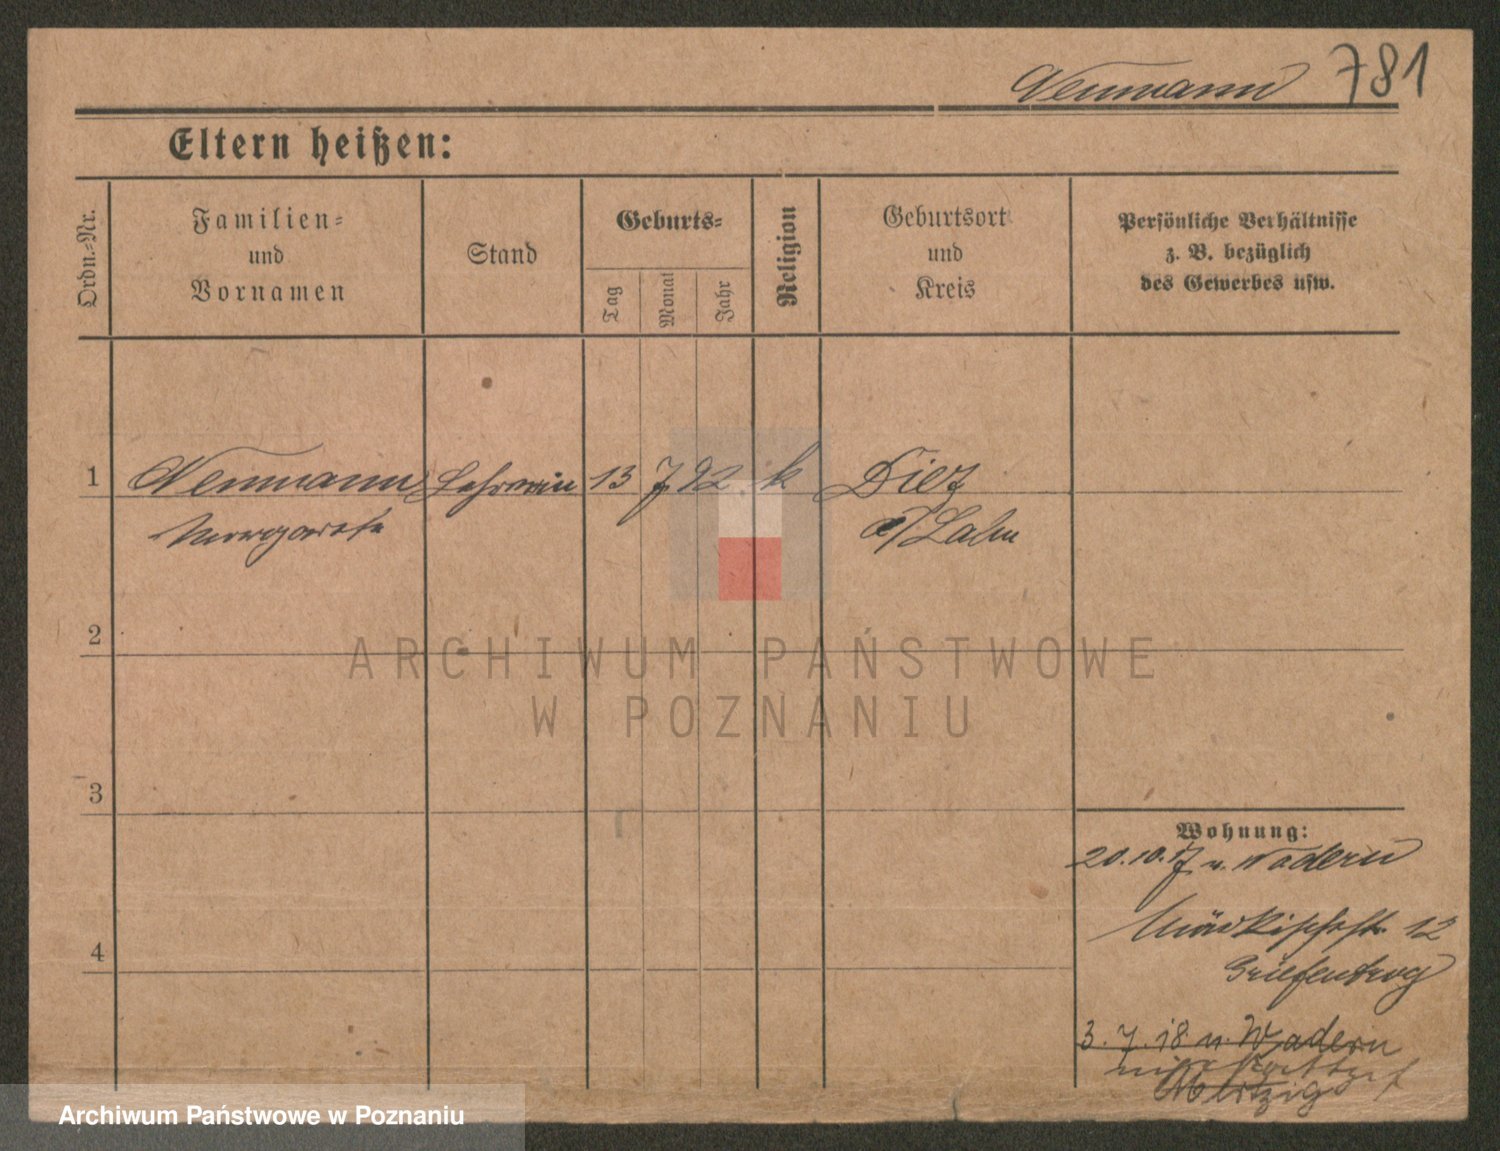 Neumann 781
Eltern heißen:
Ordn.=Nr.
Familien=
und
Vornamen
Stand
Geburts=
Tag
Monat
Jahr
Religion
Geburtsort
und
Kreis
Persönliche Verhältnisse
z. B. bezüglich
des Gewerbes usw.
1 Neumann Lehrerin 13 7 92 k Diez
Margarete a/Lahn
2
3
4
Wohnung:
20.10.17 n. Wadern
12
3.7.18 n. Wadern
Merzig
ARCHIWUM PAŃSTWOWE
W POZNANIU
Archiwum Państwowe w Poznaniu